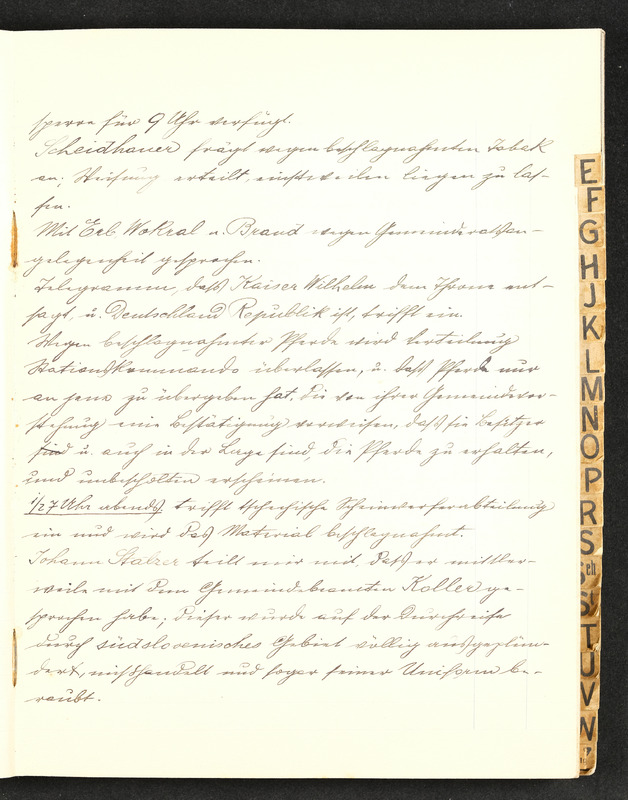 sperre für 9 Uhr verfügt.
Scheidhauer frägt wegen beschlagnahmten Tabak
an; Weisung erteilt, einstweilen liegen zu las-
sen.
Mit Erb. Wokral u. Brand wegen Gemeinderatsan-
gelegenheit gesprochen.
Telegramm, daß Kaiser Wilhelm dem Throne ent-
sagt, u. Deutschland Republik ist, trifft ein.
Wegen beschlagnahmter Pferde wird Verteilung
Stationskommando überlassen, u. daß Pferde nur
an jene zu übergeben hat, die von ihrer Gemeindevor-
stehung eine Bestätigung vorweisen, daß sie Besitzer
sind u. auch in der Lage sind, die Pferde zu erhalten,
und unbescholten erscheinen.
1/2 7 Uhr abends. trifft tschechische Scheinwerferabteilung
ein und wird das Material beschlagnahmt.
Johann Stalzer teilt mir mit, daß er mittler-
weile mit dem Gemeindebeamten Koller ge-
sprochen habe; dieser wurde auf der Durchreise
durch südslovenisches Gebiet völlig ausgeplün-
dert, mißhandelt und sogar seiner Uniform be-
raubt.
E
F
G
H
J
K
L
M
N
O
P
R
S
Sch
St
T
U
V
W